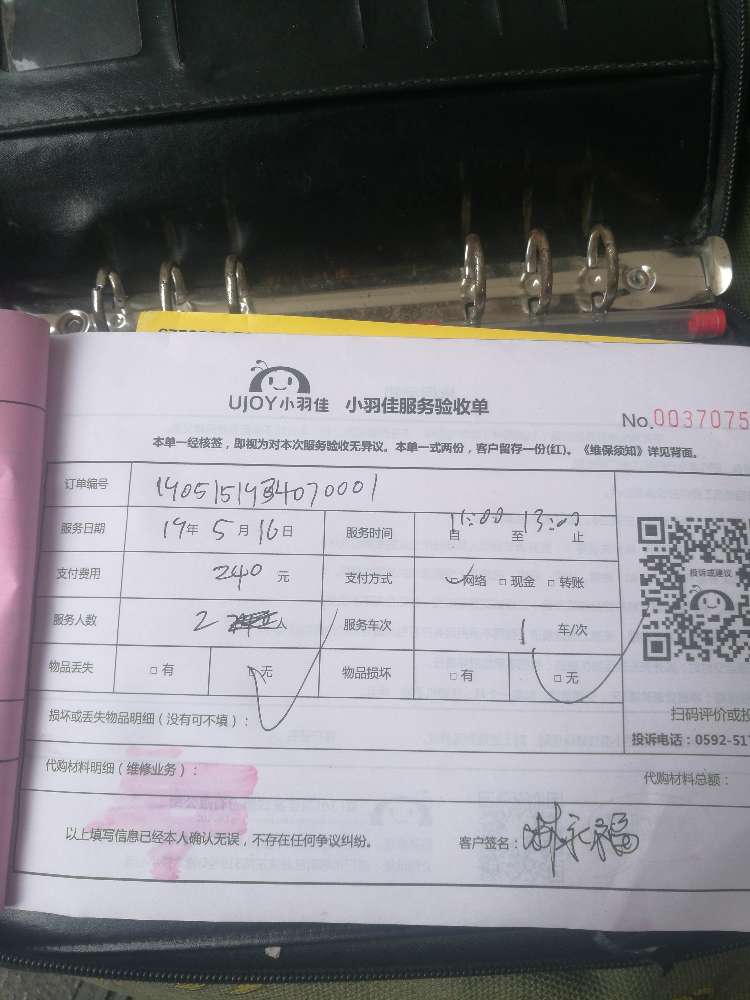 UJOY小羽佳 小羽佳服务验收单
No.0037075
本单一经核签，即视为对本次服务验收无异议。本单一式两份，客户留存一份(红)。《维保须知》详见背面。
订单编号
服务日期 19年 5月 16日 服务时间 自 11:00 至 13:00 止
支付费用 240 元 支付方式 网络 □ 现金 □ 转账
服务人数 2 人 服务车次 1 车/次
物品丢失 □ 有 □ 无 物品损坏 □ 有 □ 无
投诉或建议
损坏或丢失物品明细（没有可不填）：
扫码评价或投
投诉电话：0592-517
代购材料明细（维修业务）：
代购材料总额：
以上填写信息已经本人确认无误，不存在任何争议纠纷。 客户签名：